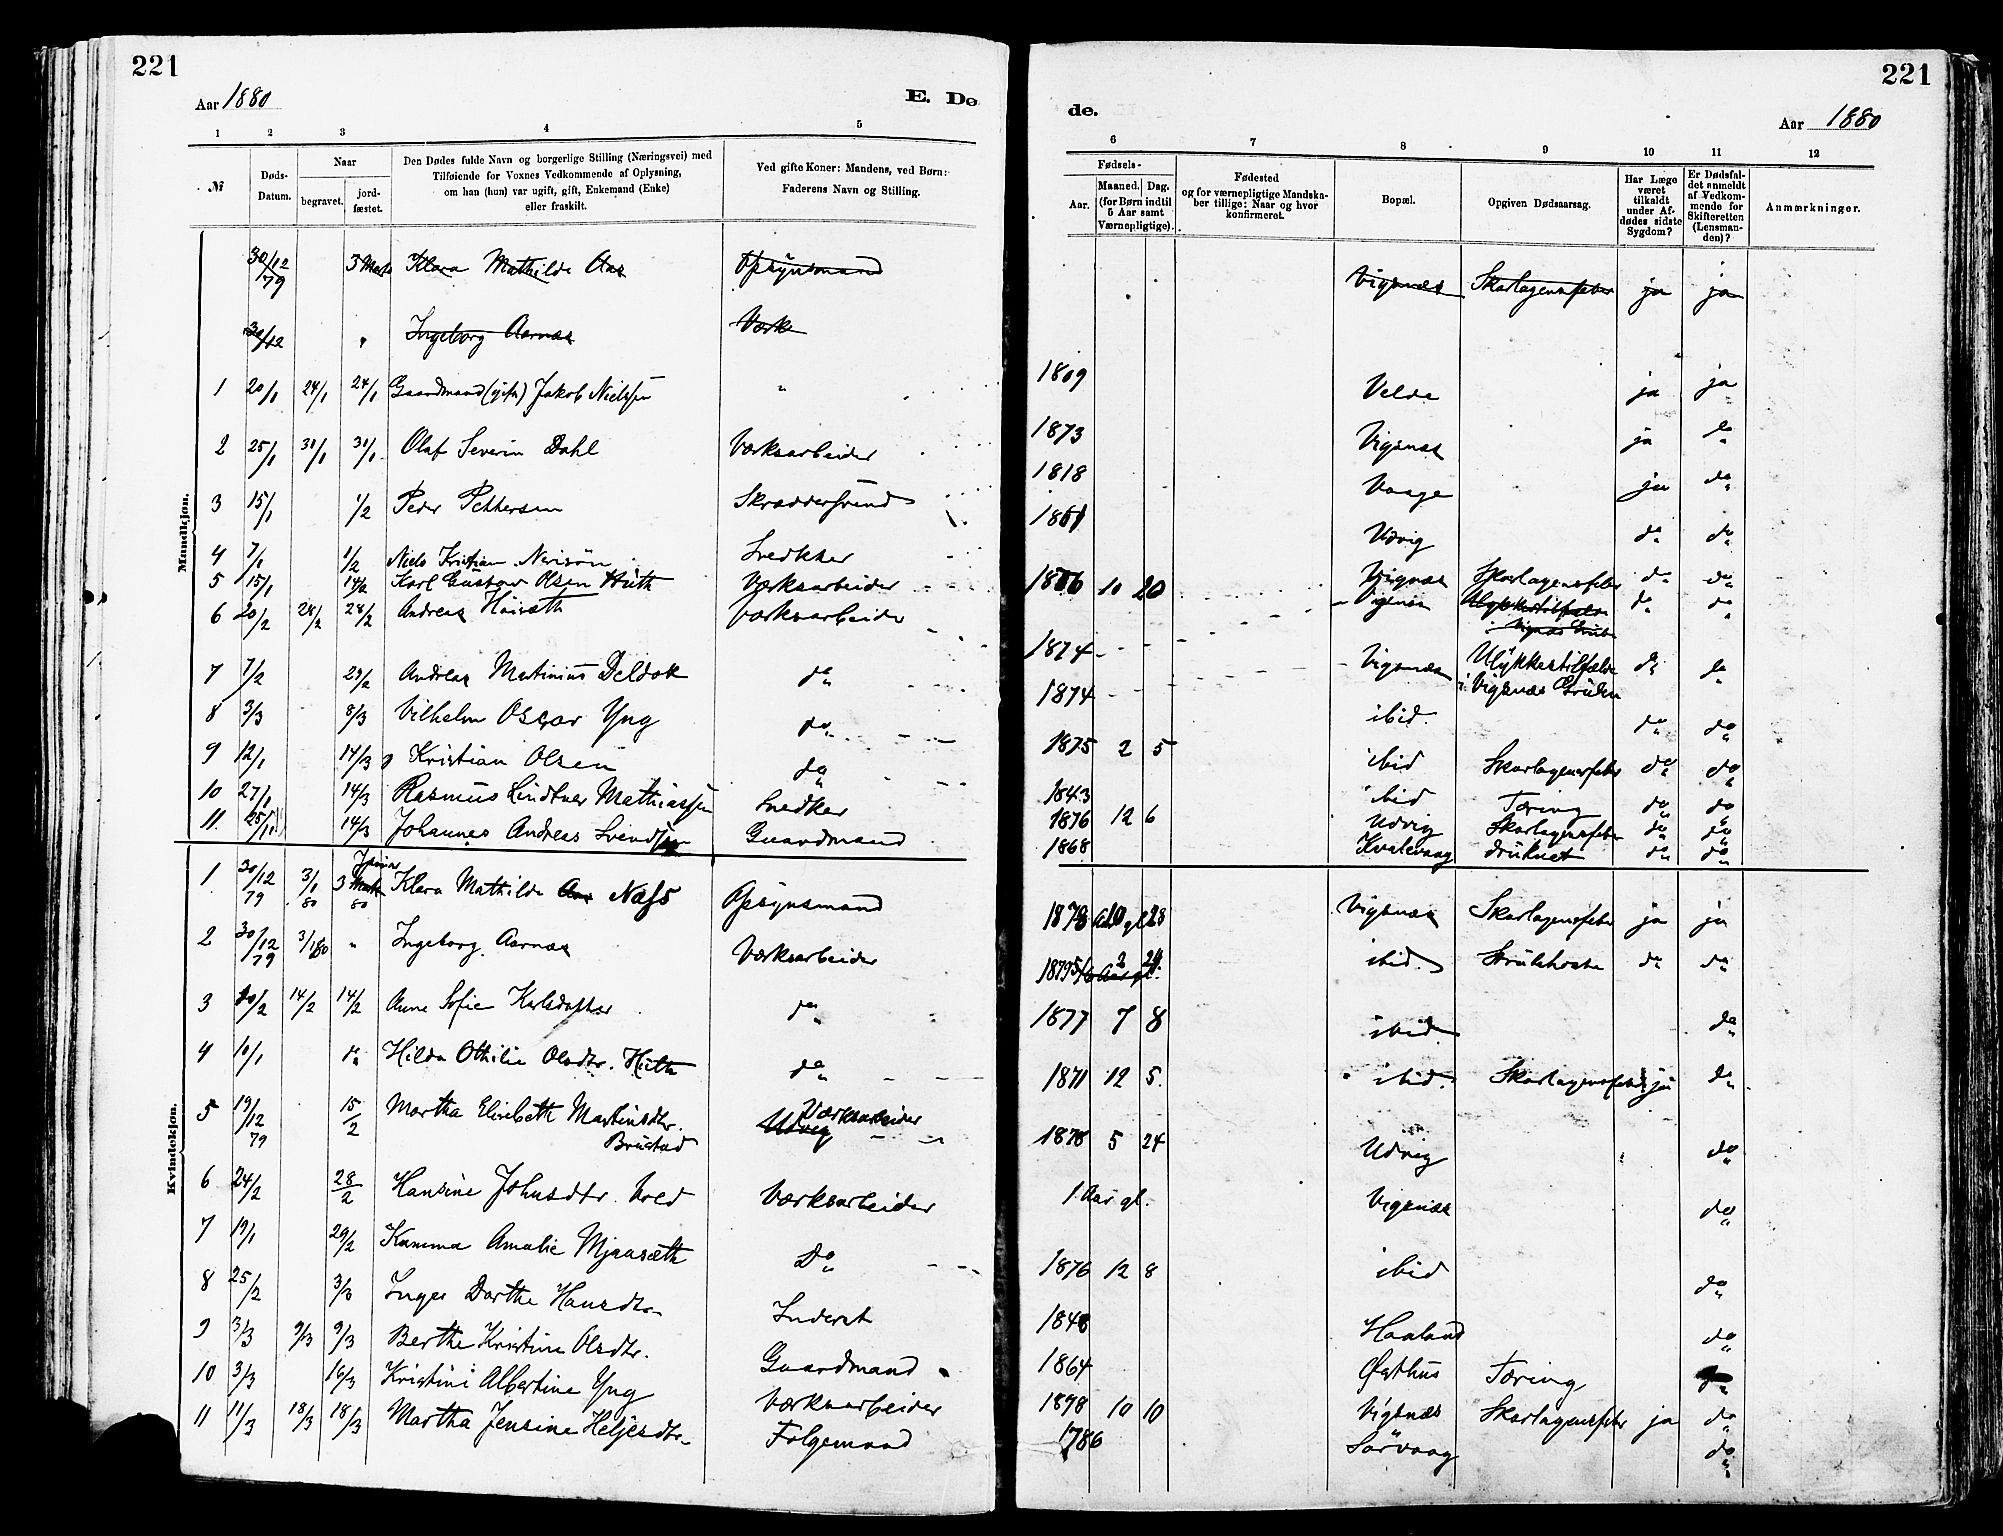 221
Aar 1880
E. De
1 2 3 4 5
№
Døds-
Datum.
Naar
begravet.
jord-
fæstet.
Den Dødes fulde Navn og borgerlige Stilling (Næringsvei) med
Tilføiende for Voxnes Vedkommende af Oplysning,
om han (hun) var ugift, gift, Enkemand (Enke)
eller fraskilt.
Ved gifte Koner: Mandens, ved Børn:
Faderens Navn og Stilling.
Mandkjøn.
30/12 79 3 Klara Mathilde Aas Opsynsmand
30/12 " Ingeborg Aarnæs Værks
1 20/1 24/1 24/1 Gaardmand (gift) Jakob Nielssen "
2 25/1 31/1 31/1 Olaf Severin Dahl Værksarbeider
3 15/1 1/2 Peder Pettersen
4 7/1 1/2 Niels Kristian Snedkker
5 15/1 14/2 Karl Gustav Olsen Huth Værksarbeider
6 20/2 28/2 28/2 Andreas Værksarbeider
7 7/2 29/2 Andreas Martinius Deldok do
8 3/3 8/3 Vilhelm Oscar Yng do
9 12/1 14/3 Kristian Olsen do
10 27/1 14/3 Rasmus Lindtner Mathiassen Snedker
11. 25/11 14/3 Johannes Andreas Svendsen Gaardmand
Kvindekjøn.
1 30/12 79 3/1 80 3 Januar 80 Klara Mathilde Aas Næss Opsynsmand
2 30/12 79 3/1 80 " Ingeborg Aarnæs Værksarbeider
3 10/2 14/2 14/2 Anne Sofie Karlsdatter do
4 10/1 do Hilda Othilie Olsdtr. Huth do
5 19/12 79 15/2 Martha Elisabeth Martinsdtr. Værksarbeider
Brustad Udvig
6 24/2 28/2 Hansine Johnsdtr. Værksarbeider
7 19/1 29/2 Kamma Amalie Do
8 25/2 3/3 Inger Dorthe Hansdtr Inderst
9 3/3 9/3 9/3 Berthe Kristine Olsdtr. Gaardmand
10 3/3 16/3 Kristine Albertine Yng Værksarbeider
11 11/3 18/3 18/3 Martha Jensine Heljesdtr. Følgemand
221
de.
Aar 1880
6 7 8 9 10 11 12
Fødsels-
Aar.
Maaned. Dag.
(for Børn indtil
5 Aar samt
Værnepligtige).
Fødested
og for værnepligtige Mandska-
ber tillige: Naar og hvor
konfirmeret.
Bopæl.
Opgiven Dødsaarsag.
Har Læge
været
tilkaldt
under Af-
dødes sidste
Sygdom?
Er Dødsfal-
det anmeldt
af Vedkom-
mende for
Skifteretten
(Lensman-
den)?
Anmærkninger.
Vigsnæs Skarlagensfeber ja ja
1809 Velde ja ja
1873 Vigsnæs ja do
1818 Vaage ja do
Udvig do do
10 20 Vigsnæs Skarlagensfeber do do
Vigsnæs Ulykkestilfælde do do
i Vigsnæs Grube
1874 Vigsnæs Ulykkestilfælde do do
i Vigsnæs Gruben
1874 ibid. do do
1875 2 5 ibid Skarlagensfeber do do
1843 ibid Tæring do do
1876 12 6 Udvig Skarlagensfeber do do
1868 Kvalevaag druknet do do
1878 Vigsnæs Skarlagensfeber ja ja
ibid. Strubehoste do do
1877 7 8 ibid. do
1871 12 5. ibid. Skarlagensfeber ja do
1878 5 24 Udvig do
1 Aar gl. Vigsnæs do
1876 12 8 ibid do
1848 Haaland do
1864 Østhus Tæring do
1898 10 10 Vigsnæs Skarlagensfeber ja do
1786 Sørvaag do